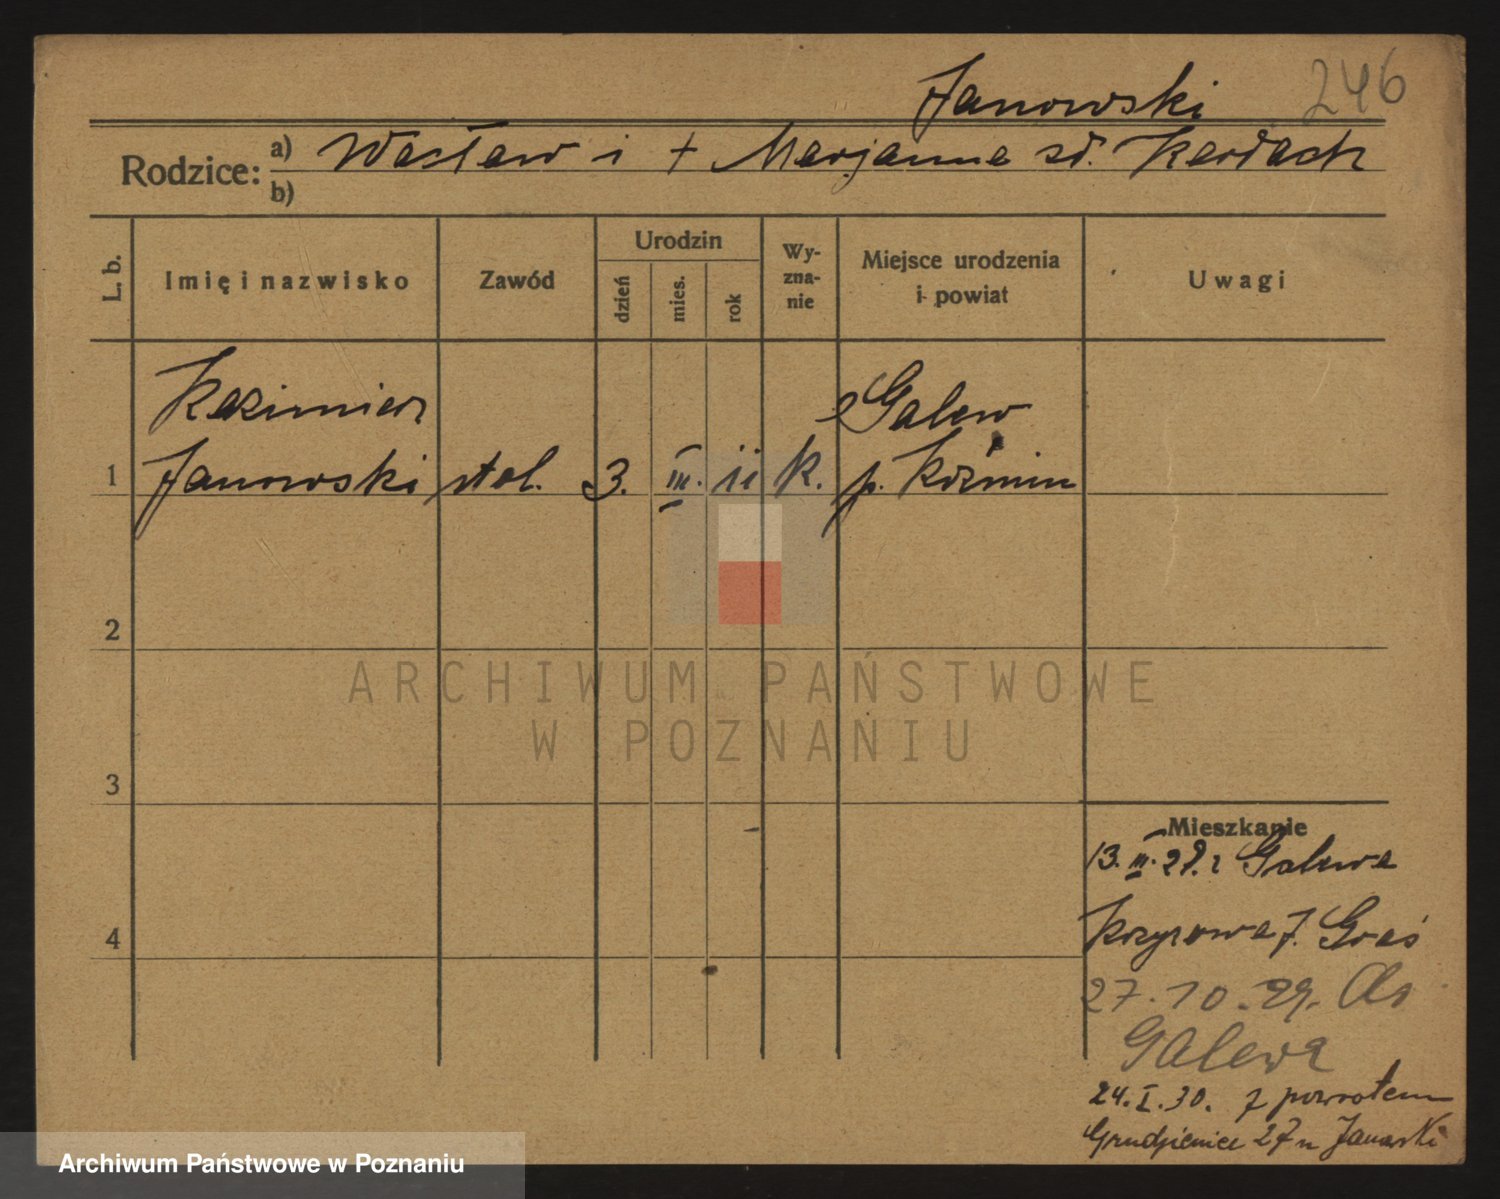 Janowski 246
Rodzice: a) Wacław i + Marjanna zd. Kardach
b)
L. b. Imię i nazwisko Zawód Urodzin dzień mies. rok Wy-zna-nie Miejsce urodzenia i powiat Uwagi
Kazimierz Galew
1 Janowski stol. 3. III. 11 k. p. Koźmin
2
3
4
Mieszkanie
13. III. 29. z Galewa
27. 10. 29. do
Galewa
24. I. 30. z powrotem
27 Janowski
ARCHIWUM PAŃSTWOWE
W POZNANIU
Archiwum Państwowe w Poznaniu